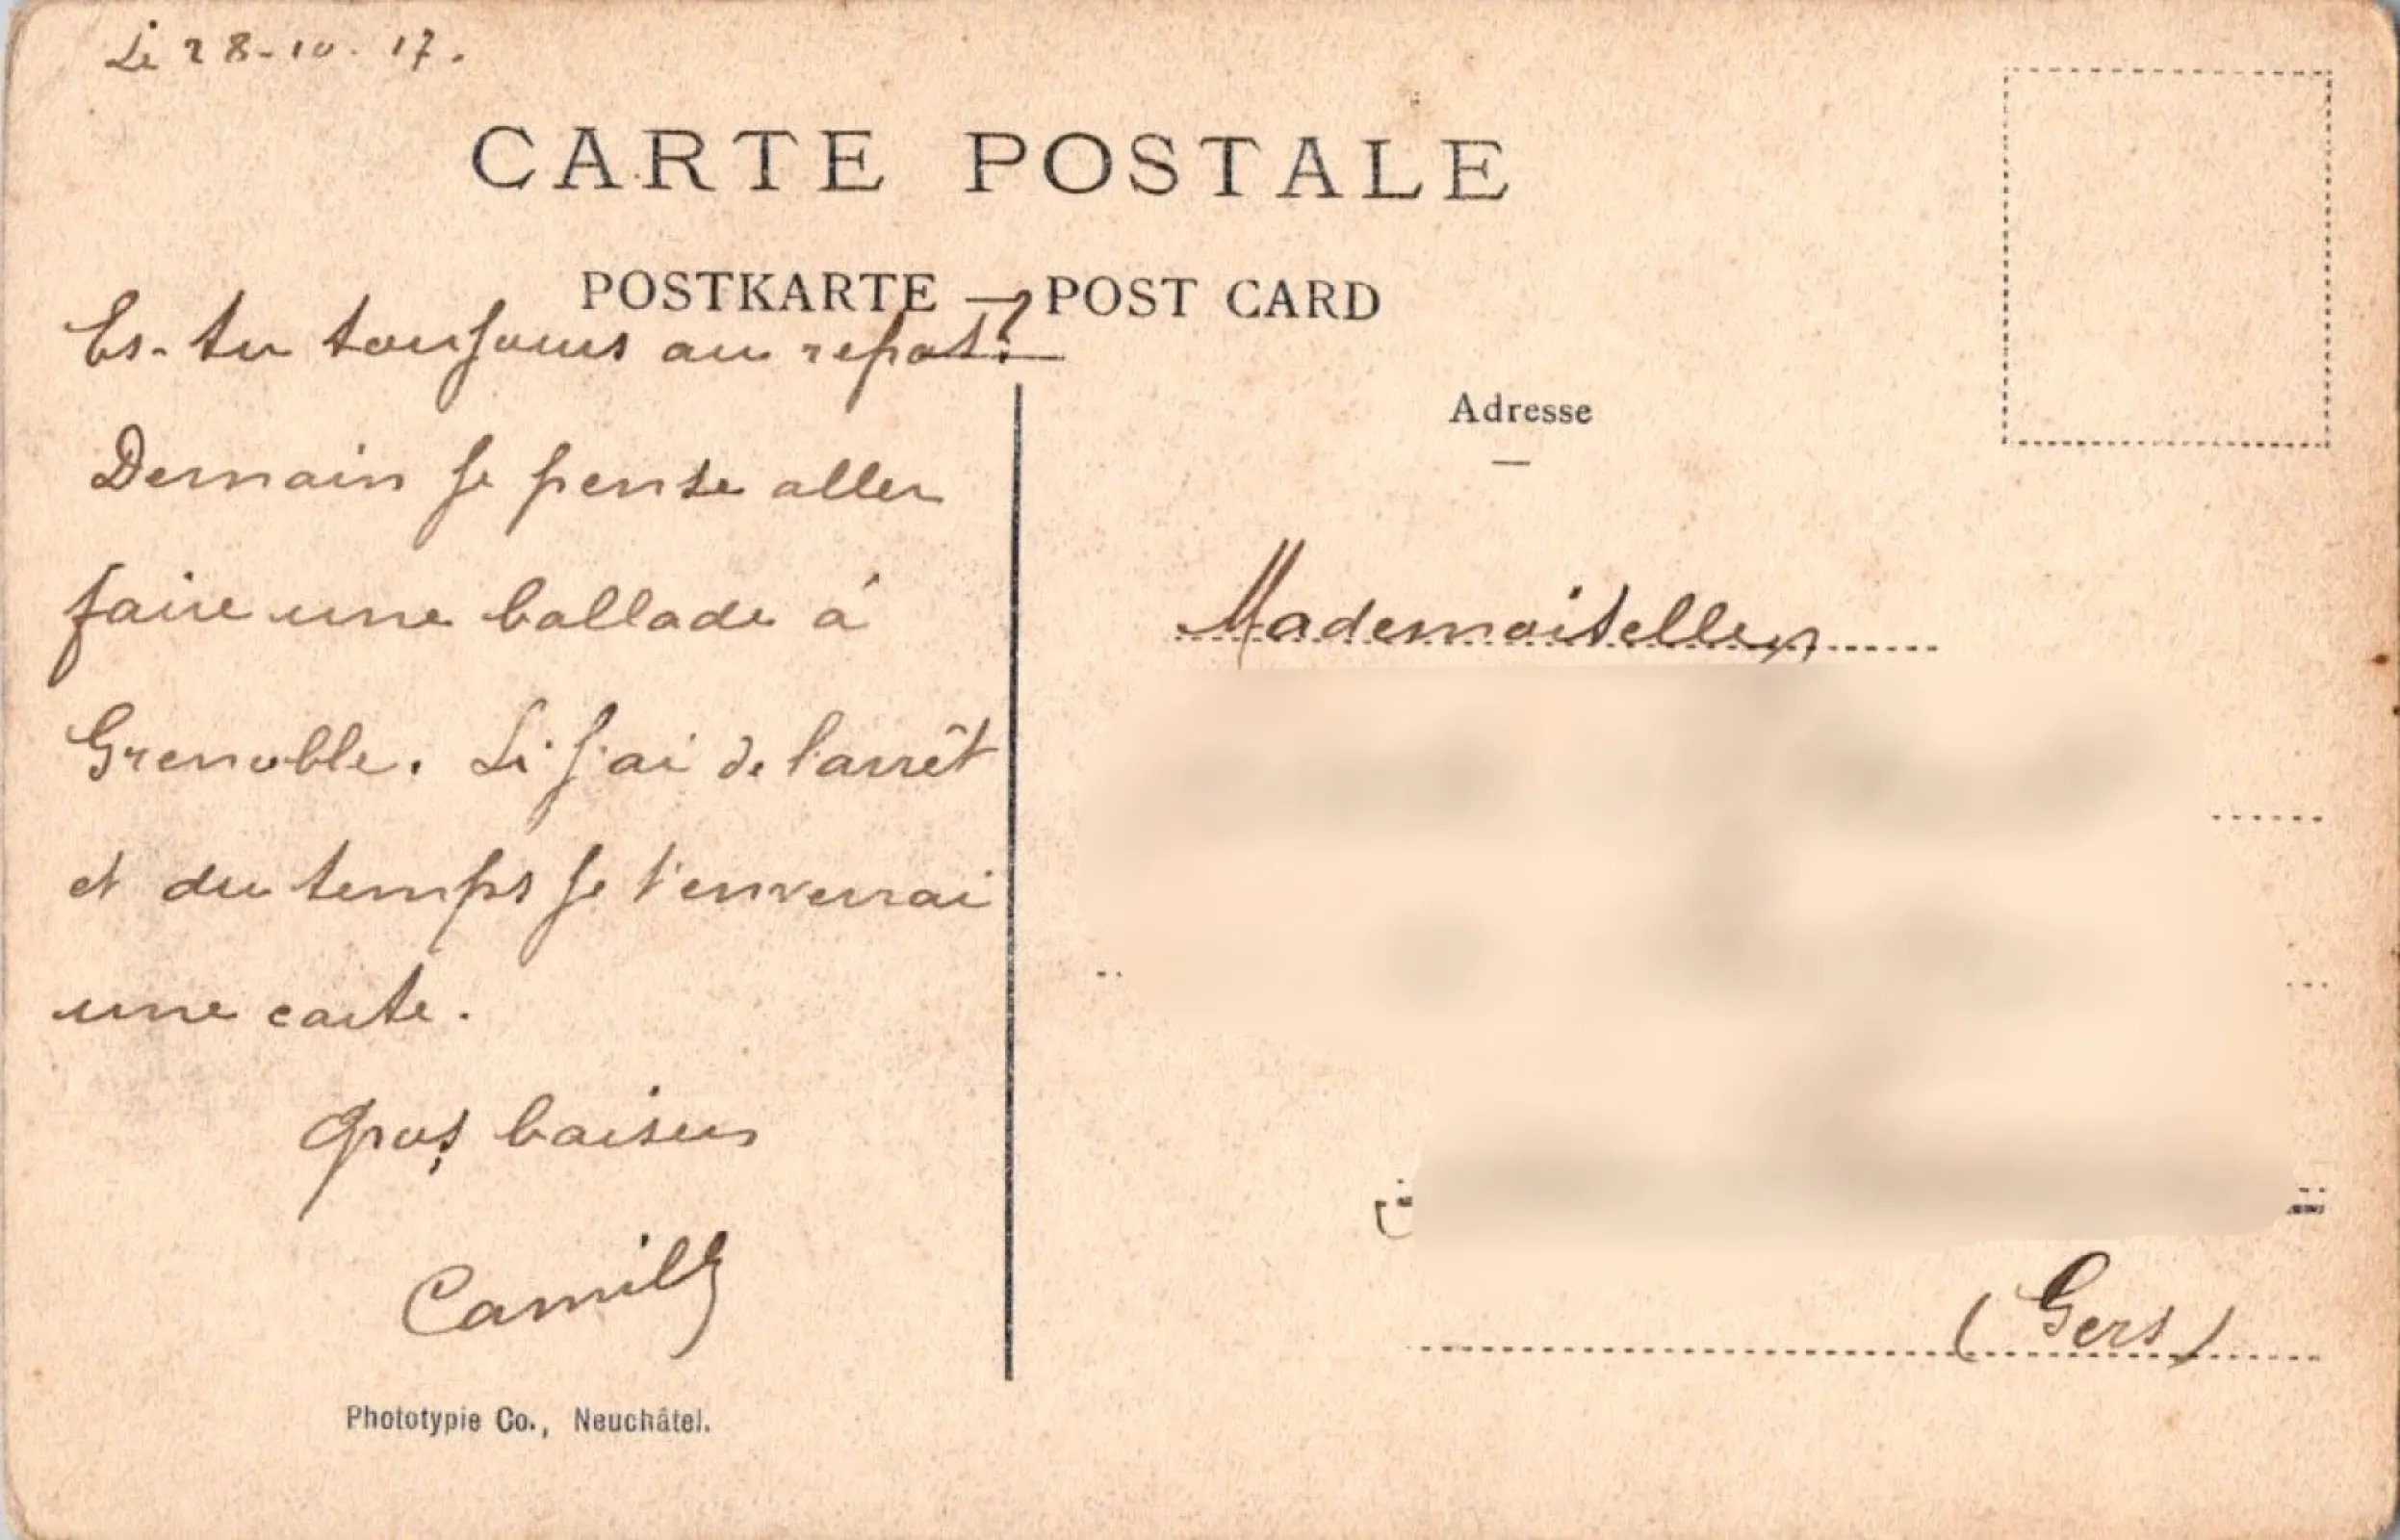 Le 28-10-17.
CARTE POSTALE
POSTKARTE — POST CARD
Es-tu toujours au repos?
Demain je pense aller
faire une ballade à
Grenoble. Si j'ai de l'arrêt
et du temps je t'enverrai
une carte.
Gros baisers
Camille
Phototypie Co., Neuchâtel.
Adresse
Mademoiselle
(Gers)